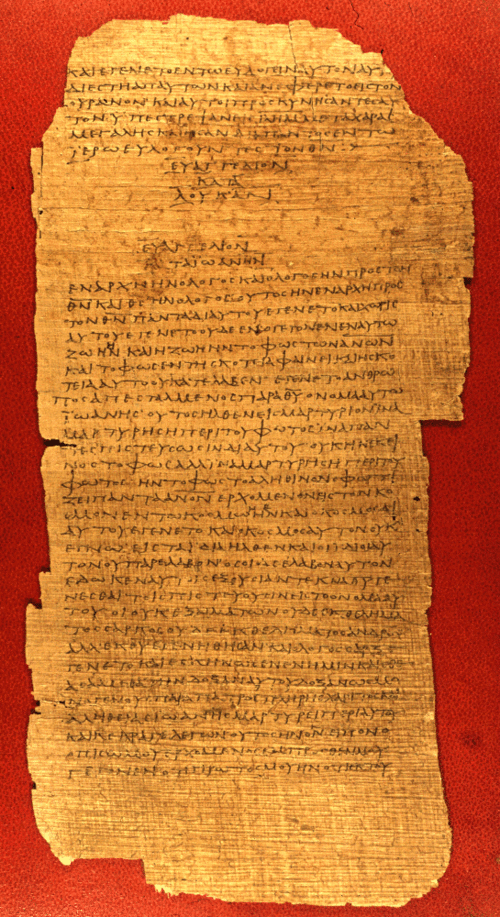 ΚΑΙΕΓΕΝΕΤΟΕΝΤΩΕΥΛΟΓΕΙΝΑΥΤΟΝΑΥ
ΔΙΕϹΤΗΑΠΑΥΤΩΝΚΑΙΑΝΕΦΕΡΕΤΟΕΙϹΤΟΝ
ΟΥΡΑΝΟΝΚΑΙΑΥΤΟΙΠΡΟϹΚΥΝΗϹΑΝΤΕϹΑΥ
ΤΟΝΥΠΕϹΤΡΕΨΑΝ ΜΕΤΑΧΑΡΑϹ
ΜΕΓΑΛΗϹΚΑΙΗϹΑΝΔΙΑΠΑΝΤΟϹΕΝΤΩ
ΪΕΡΩΕΥΛΟΓΟΥΝΤΕϹΤΟΝΘΝ
ΕΥΑΓΓΕΛΙΟΝ
ΚΑΤΑ
ΛΟΥΚΑΝ
ΕΥΑΓΓΕΛΙΟΝ
ΚΑΤΑΪΩΑΝΗΝ
ΕΝΑΡΧΗΗΝΟΛΟΓΟϹΚΑΙΟΛΟΓΟϹΗΝΠΡΟϹΤΟΝ
ΘΝΚΑΙΘϹΗΝΟΛΟΓΟϹΟΥΤΟϹΗΝΕΝΑΡΧΗΠΡΟϹ
ΤΟΝΘΝΠΑΝΤΑΔΙΑΥΤΟΥΕΓΕΝΕΤΟΚΑΙΧΩΡΙϹ
ΑΥΤΟΥΕΓΕΝΕΤΟΟΥΔΕΕΝΟΓΕΓΟΝΕΝΕΝΑΥΤΩ
ΖΩΗΗΝΚΑΙΗΖΩΗΗΝΤΟΦΩϹΤΩΝΑΝΩΝ
ΚΑΙΤΟΦΩϹΕΝΤΗϹΚΟΤΕΙΑΦΑΙΝΕΙΚΑΙΗϹΚΟ
ΤΕΙΑΑΥΤΟΟΥΚΑΤΕΛΑΒΕΝΕΓΕΝΕΤΟΑΝΘΡΩ
ΠΟϹΑΠΕϹΤΑΛΜΕΝΟϹΠΑΡΑΘΥΟΝΟΜΑΑΥΤΩ
ΪΩΑΝΗϹΟΥΤΟϹΗΛΘΕΝΕΙϹΜΑΡΤΥΡΙΟΝΙΝΑ
ΜΑΡΤΥΡΗϹΗΠΕΡΙΤΟΥΦΩΤΟϹΙΝΑΠΑΝ
ΤΕϹΠΙϹΤΕΥϹΩϹΙΝΔΙΑΥΤΟΥΟΥΚΗΝΕΚΕΙ
ΝΟϹΤΟΦΩϹΑΛΛΙΝΑΜΑΡΤΥΡΗϹΗΠΕΡΙΤΟΥ
ΦΩΤΟϹΗΝΤΟΦΩϹΤΟΑΛΗΘΙΝΟΝΟΦΩΤΙ
ΖΕΙΠΑΝΤΑΑΝΟΝΕΡΧΟΜΕΝΟΝΕΙϹΤΟΝΚΟ
ϹΜΟΝΕΝΤΩΚΟϹΜΩΗΝΚΑΙΟΚΟϹΜΟϹΔΙ
ΑΥΤΟΥΕΓΕΝΕΤΟΚΑΙΟΚΟϹΜΟϹΑΥΤΟΝΟΥΚ
ΕΓΝΩΕΙϹΤΑΙΔΙΑΗΛΘΕΝΚΑΙΟΙΙΔΙΟΙΑΥ
ΤΟΝΟΥΠΑΡΕΛΑΒΟΝΟϹΟΙΔΕΕΛΑΒΟΝΑΥΤΟΝ
ΕΔΩΚΕΝΑΥΤΟΙϹΕΞΟΥϹΙΑΝΤΕΚΝΑΘΥΓΕ
ΝΕϹΘΑΙΤΟΙϹΠΙϹΤΕΥΟΥϹΙΝΕΙϹΤΟΟΝΟΜΑΑΥ
ΤΟΥΟΙΟΥΚΕΞΑΙΜΑΤΩΝΟΥΔΕΕΚΘΕΛΗΜΑ
ΤΟϹϹΑΡΚΟϹΟΥΔΕΕΚΘΕΛΗΜΑΤΟϹΑΝΔΡΟϹ
ΑΛΛΕΚΘΥΕΓΕΝΝΗΘΗϹΑΝΚΑΙΟΛΟΓΟϹϹΑΡΞΕ
ΓΕΝΕΤΟΚΑΙΕϹΚΗΝΩϹΕΝΕΝΗΜΙΝΚΑΙΕΘΕ
ΑϹΑΜΕΘΑΤΗΝΔΟΞΑΝΑΥΤΟΥΔΟΞΑΝΩϹΜΟ
ΝΟΓΕΝΟΥϹΠΑΡΑΠΑΤΡΟϹΠΛΗΡΗϹΧΑΡΙΤΟϹΚΑΙ
ΑΛΗΘΕΙΑϹΪΩΑΝΗϹΜΑΡΤΥΡΕΙΠΕΡΙΑΥΤΟΥ
ΚΑΙΚΕΚΡΑΓΕΛΕΓΩΝΟΥΤΟϹΗΝΟΝΕΙΠΟΝΟ
ΟΠΙϹΩΜΟΥΕΡΧΟΜΕΝΟϹΕΜΠΡΟϹΘΕΝΜΟΥ
ΓΕΓΟΝΕΝΟΤΙΠΡΩΤΟϹΜΟΥΗΝΟΤΙΕΚΤΟΥ